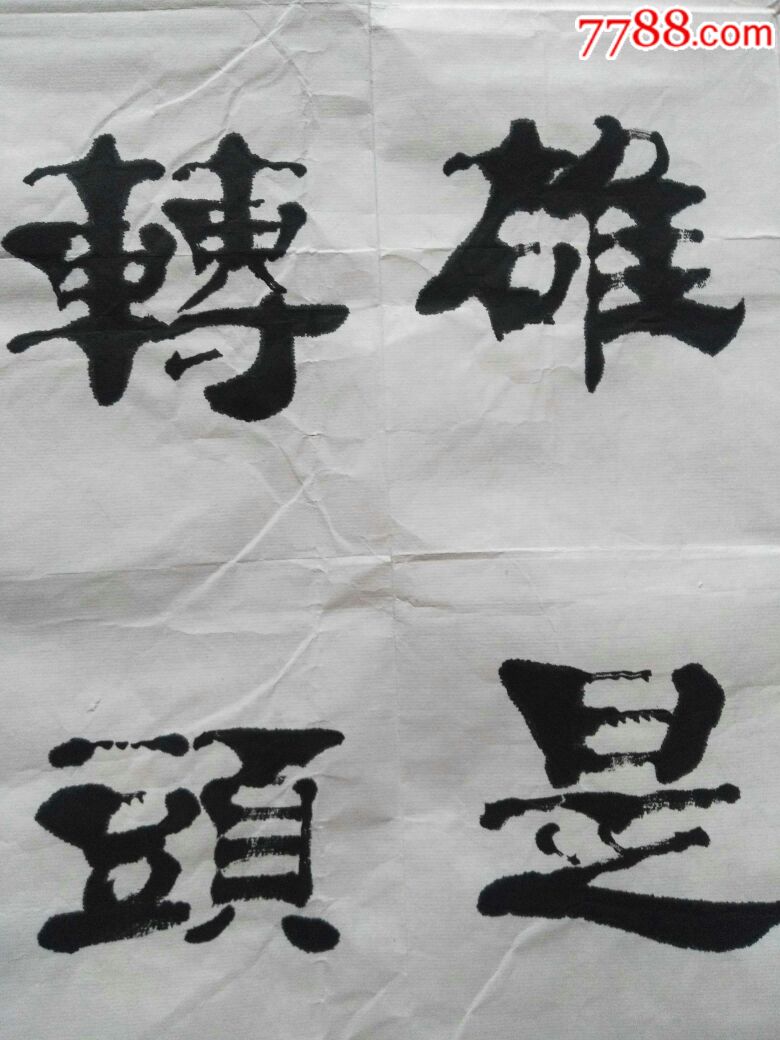 7788.com熱
雄是
轉頭